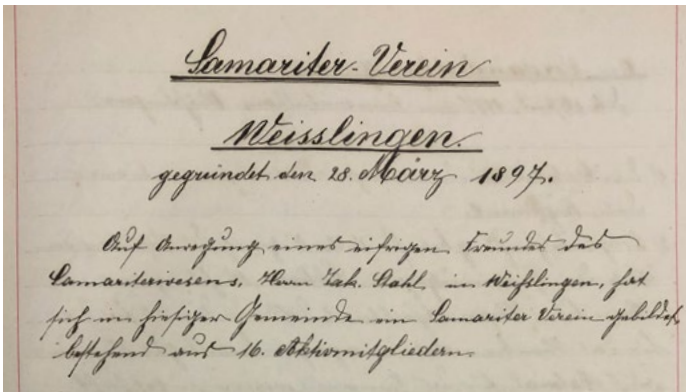 Samariter-Verein
Weisslingen.
gegründet den 28. März 1897.
Auf Anregung eines eifrigen Freundes des
Samariterwesens, Herrn Jak. Stahl in Weißlingen, hat
sich in hiesiger Gemeinde ein Samariter Verein gebildet,
bestehend aus 16. Aktivmitgliedern.